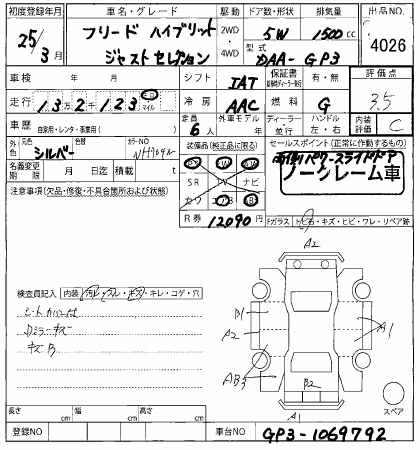 初度登録年月 車名・グレード 駆動 ドア数・形状 排気量 出品NO.
25年3月 フリード ハイブリット 2WD 5W 1500cc 4026
ジャストセレクション 4WD 型式 DAA-GP3
車検 年 月 シフト IAT 保証書 有・無 評価点
走行 13万2千123 キロ マイル 冷房 AAC 燃料 G 3.5
車歴 自家用・レンタ・事業用( ) 定員 6人 外車モデル ディーラー 並行 ハンドル 左・右 内装 C
外色 元色 シルバー 色替 カラーNO NH704M 装備品(純正品に限る) セールスポイント(正常に作動するもの)
両側パワースライドドア
名義変更期限 月 日迄 積載 t SR ナビ ノークレーム車
注意事項(欠品・修復・不具合箇所および状態) カワ
R券 12090円 Fガラス トビ石・キズ・ヒビ・ワレ・リペア跡
A2
検査員記入 内装 汚レ・スレ・キズ・キレ・コゲ・穴
シートカバー付
Dミラーキズ
キズB
B1
A2
A1
AB3
B2
A1
スペア
長さ cm 幅 cm 高さ cm
登録NO 車台NO GP3-1069792